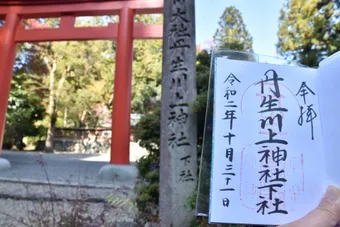 大社丹生川上神社
下社
令和二年十月三十一日
丹生川上神社下社
奉拝